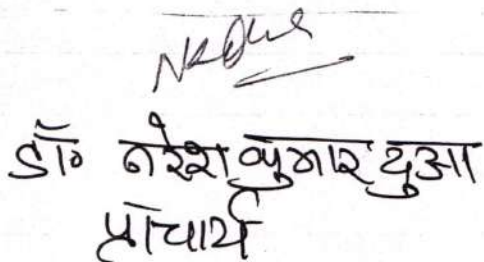 NKDua
डॉ० नरेश कुमार दुआ
प्राचार्य